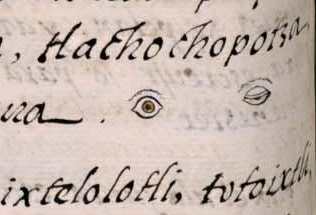 , tlachochopotza
ixtelolotli, totoixtli,